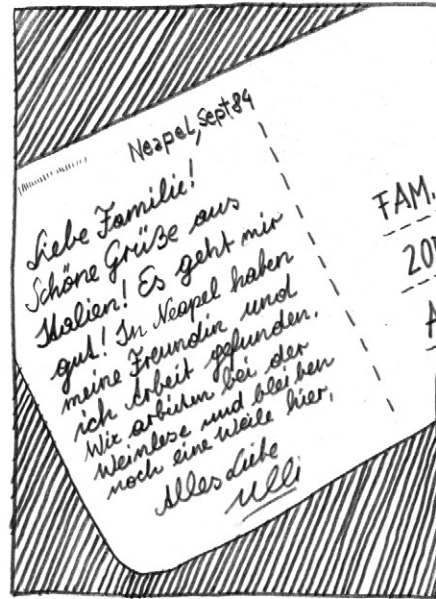 Neapel, Sept 84
Liebe Familie!
Schöne Grüße aus
Italien! Es geht mir
gut! In Neapel haben
meine Freundin und
ich Arbeit gefunden.
Wir arbeiten bei der
Weinlese und bleiben
noch eine Weile hier.
Alles Liebe
Ulli
FAM.